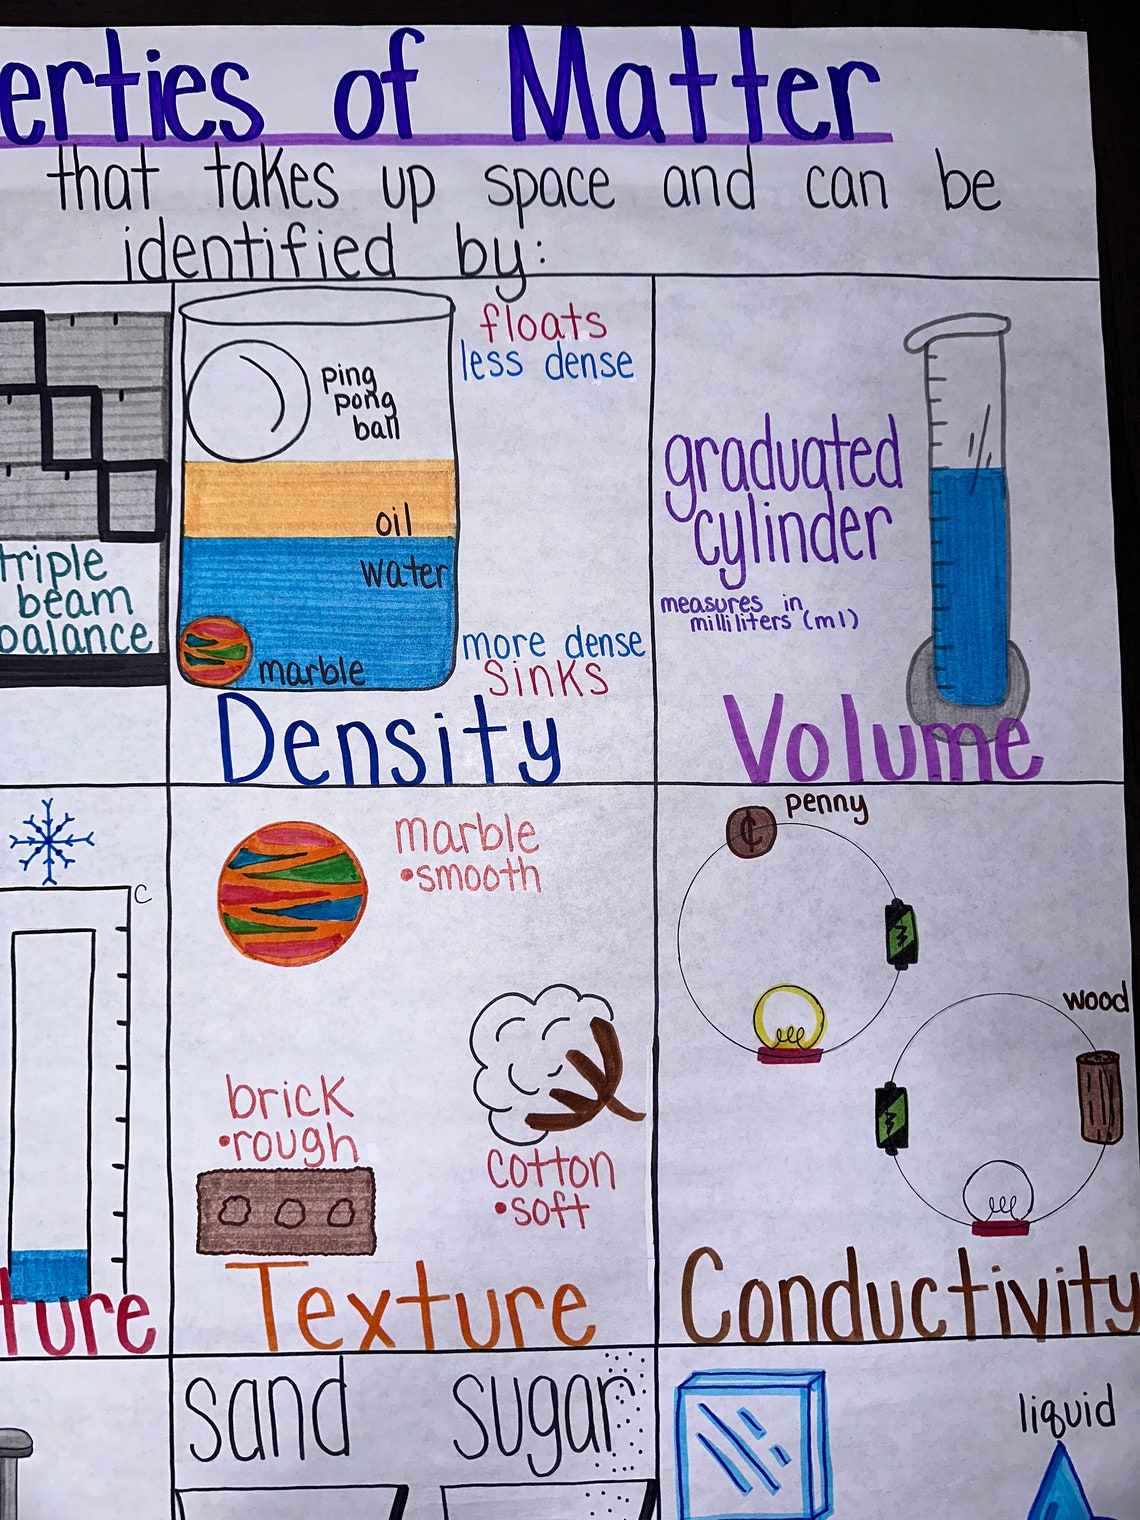 erties of Matter
that takes up space and can be
identified by:
triple
beam
balance
ping
pong
ball
oil
water
marble
floats
less dense
more dense
sinks
Density
graduated
cylinder
measures in
milliliters (ml)
Volume
C
ture
marble
•smooth
brick
•rough
cotton
•soft
Texture
penny
¢
wood
Conductivity
sand
sugar
liquid